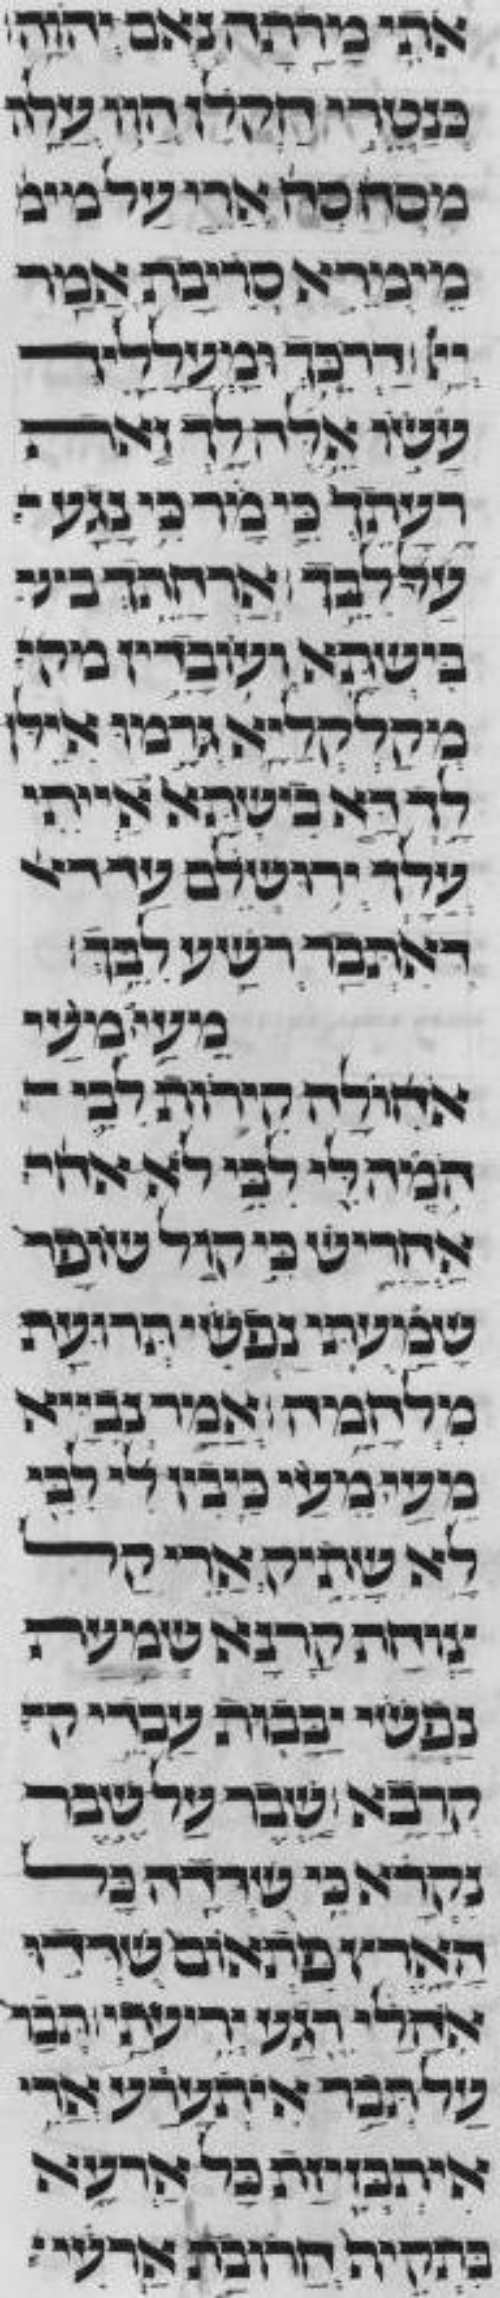 אתי מרתה נאם יהוה׃
כנטרי חקלו הוו עלה
מסח סח ארי על מימ
מימרא סריבת אמר
ייי׃ דרכך ומעלליך
עשו אלה לך זאת
רעתך כי מר כי נגע
עד לבך׃ ארחתך ביש
בישתא ועובדין מק
מקלקליא גרמו אילין
לך דא בישתא אייתי
עלך ירושלם עד דא
דאתבר רשע לבך׃
מעי מעי
אחולה קירות לבי
המה לי לבי לא אחר
אחריש כי קול שופר
שמעתי נפשי תרועת
מלחמה׃ אמר נבייא
מעי מעי כיבין לי לבי
לא שתיק ארי קל
צוחת קרנא שמעת
נפשי יבבות עבדי ק
קרבא׃ שבר על שבר
נקרא כי שדדה כל
הארץ פתאום שדדו
אהלי רגע יריעתי׃ תבר
על תבר איתערע ארי
איתבזיזת כל ארעא
בתקיה חרובת ארעי